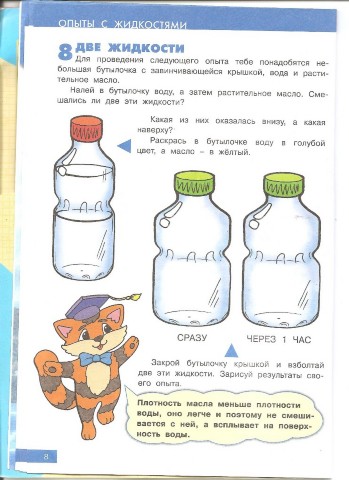 ОПЫТЫ С ЖИДКОСТЯМИ
8 ДВЕ ЖИДКОСТИ
Для проведения следующего опыта тебе понадобятся не-
большая бутылочка с завинчивающейся крышкой, вода и расти-
тельное масло.
Налей в бутылочку воду, а затем растительное масло. Сме-
шались ли две эти жидкости?
Какая из них оказалась внизу, а какая
наверху?
Раскрась в бутылочке воду в голубой
цвет, а масло – в жёлтый.
СРАЗУ
ЧЕРЕЗ 1 ЧАС
Закрой бутылочку крышкой и взболтай
две эти жидкости. Зарисуй результаты сво-
его опыта.
Плотность масла меньше плотности
воды, оно легче и поэтому не смеши-
вается с ней, а всплывает на поверх-
ность воды.
8